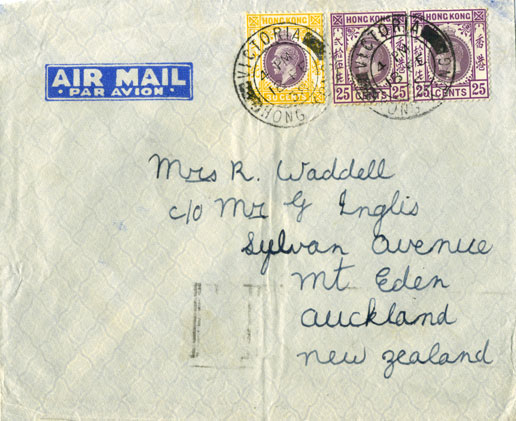 HONG KONG HONG KONG HONG KONG
VICTORIA VICTORIA
AIR MAIL
PAR AVION
30 CENTS 25 CENTS 25 25 CENTS 25
HONG KONG
Mrs R. Waddell
c/o Mr G Inglis
Sylvan Avenue
Mt Eden
Auckland
New Zealand